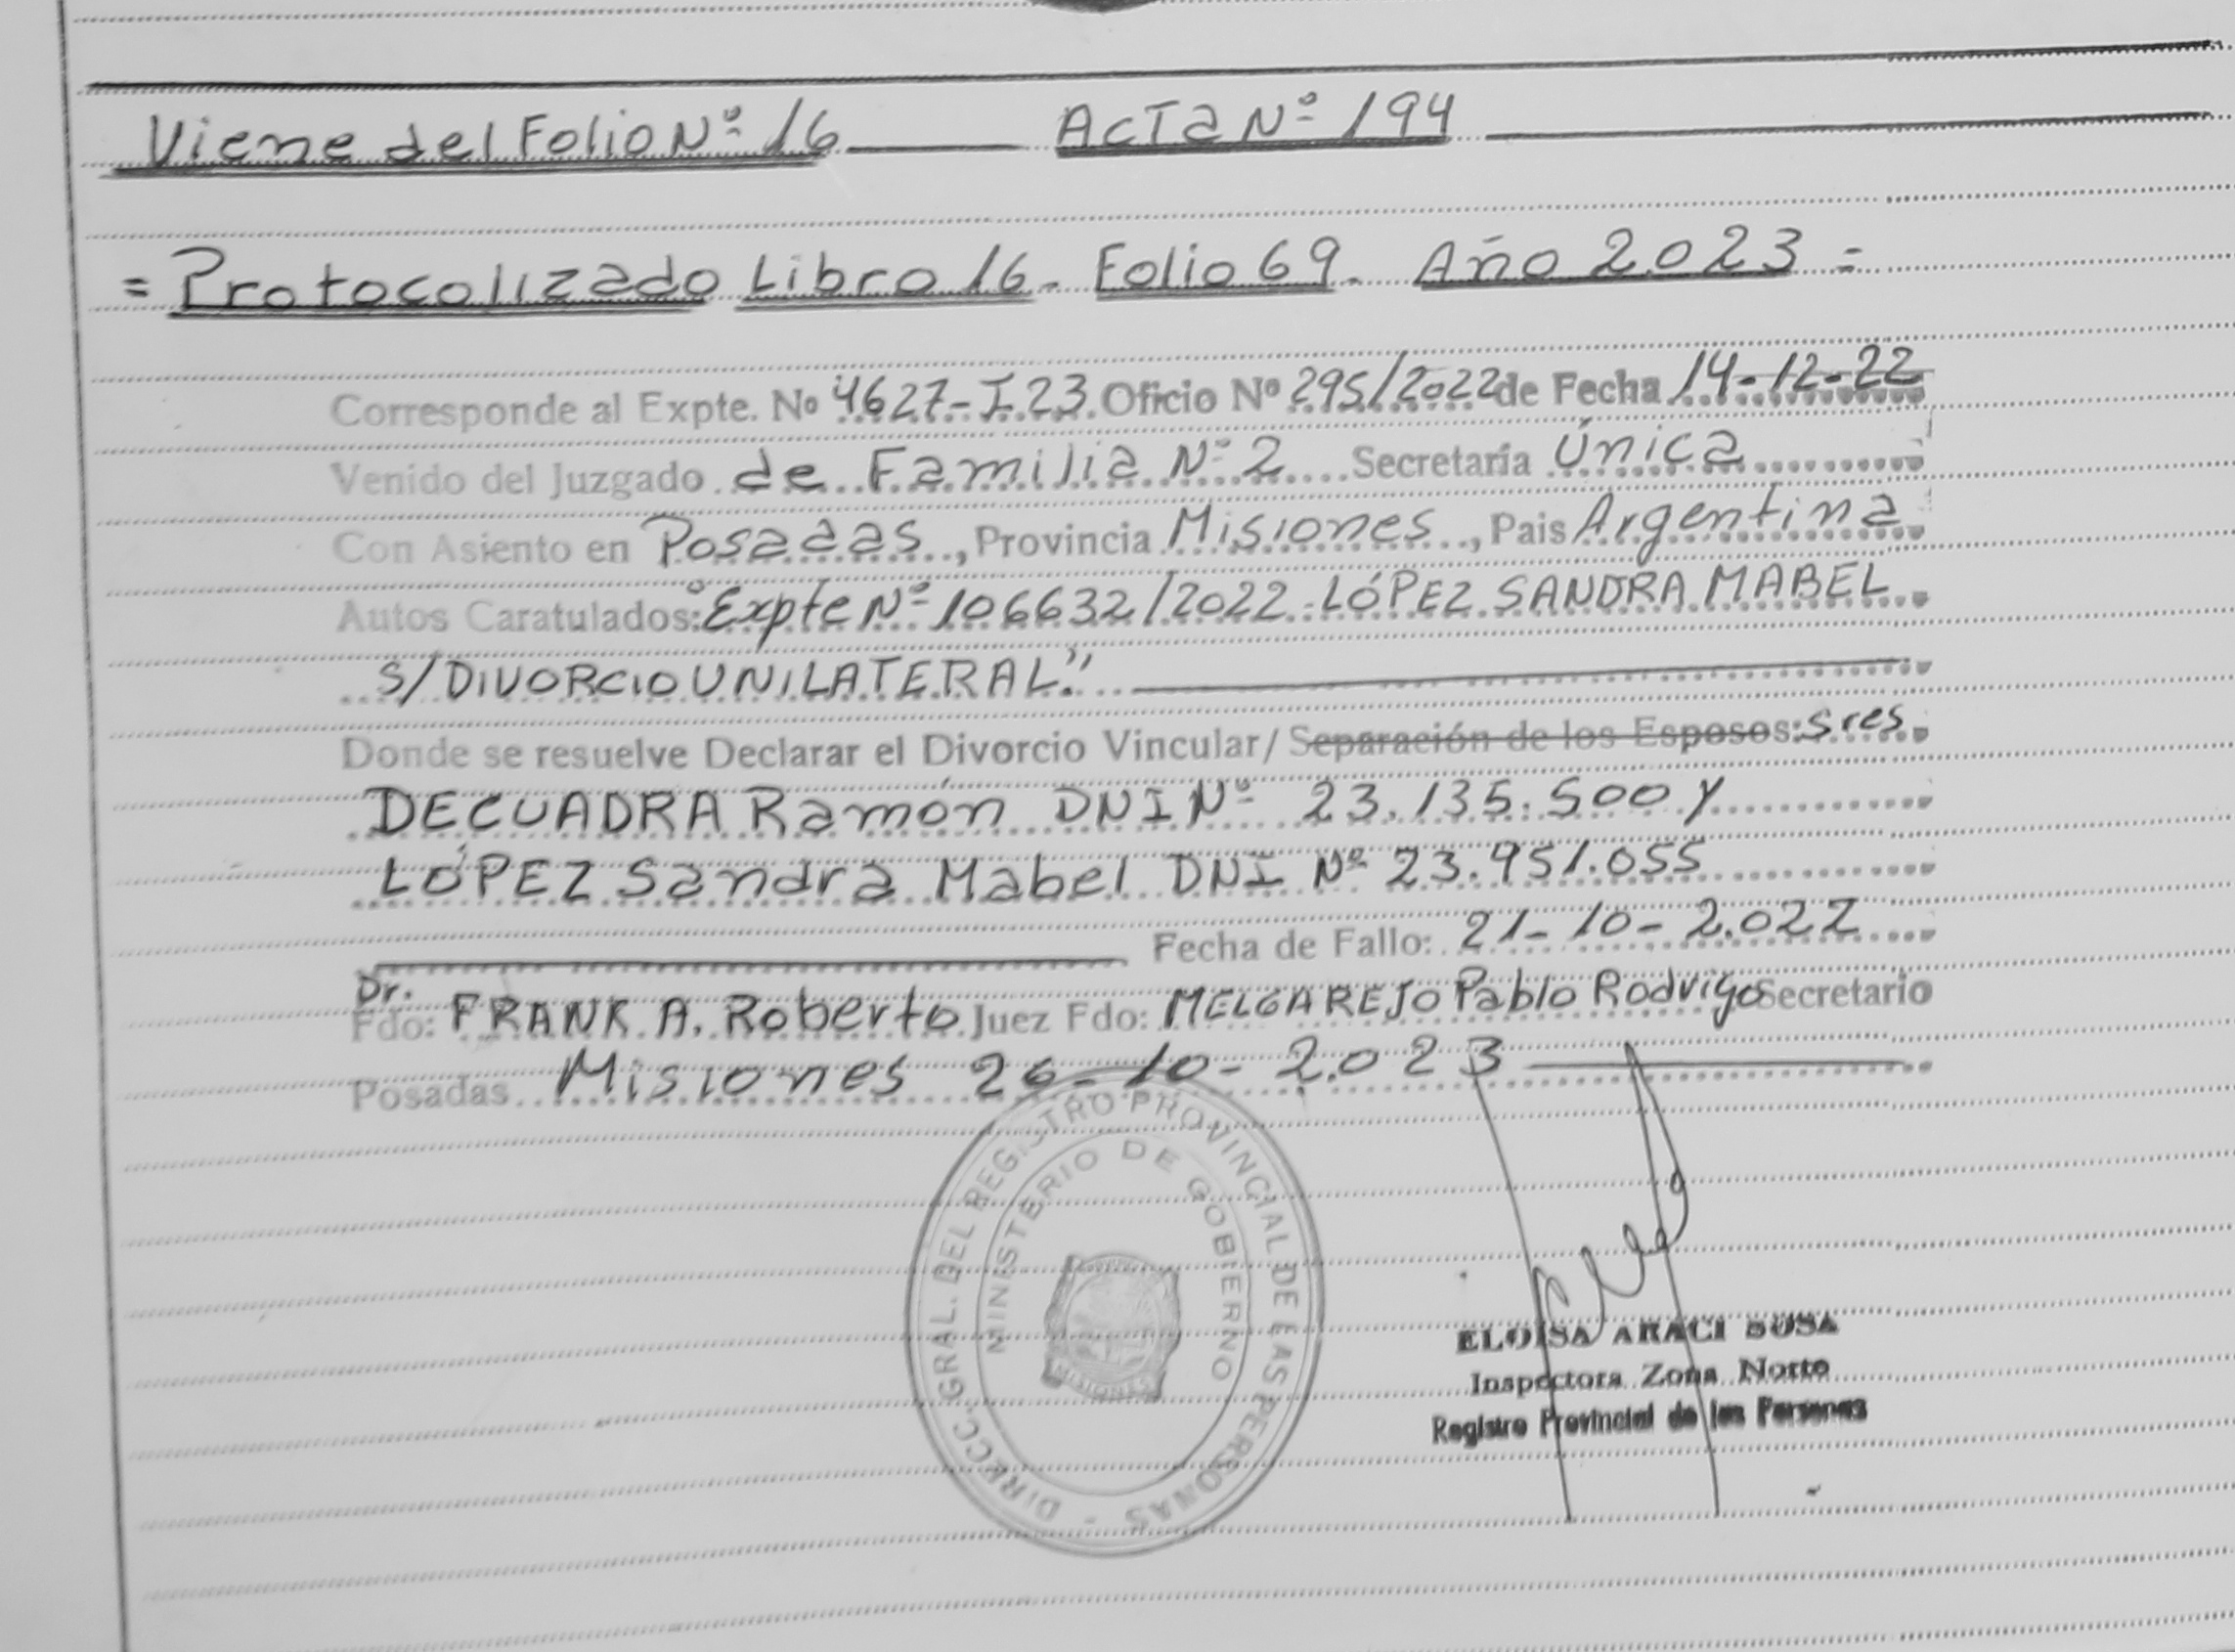 Viene del Folio Nº 16 Acta Nº 194
= Protocolizado Libro 16. Folio 69. Año 2.023 =
Corresponde al Expte. Nº 4627-I-23. Oficio Nº 295/2022 de Fecha 14-12-22
Venido del Juzgado de Familia Nº 2 Secretaría Única
Con Asiento en Posadas, Provincia Misiones, Pais Argentina
Autos Caratulados: "Expte Nº 106632/2022 - LÓPEZ SANDRA MABEL
S/DIVORCIO UNILATERAL."
Donde se resuelve Declarar el Divorcio Vincular/ Separación de los Esposos: Sres.
DECUADRA Ramón DNI Nº 23.135.500 y
LÓPEZ Sandra Mabel DNI Nº 23.951.055
Fecha de Fallo: 21-10-2.022
Dr.
Fdo: FRANK A. Roberto Juez Fdo: MELGAREJO Pablo Rodrigo Secretario
Posadas Misiones 26-10-2.023
DIRECC. GRAL. DEL REGISTRO PROVINCIAL DE LAS PERSONAS -
MINISTERIO DE GOBIERNO
MISIONES
ELOISA ARACI SOSA
Inspectora Zona Norte
Registro Provincial de las Personas